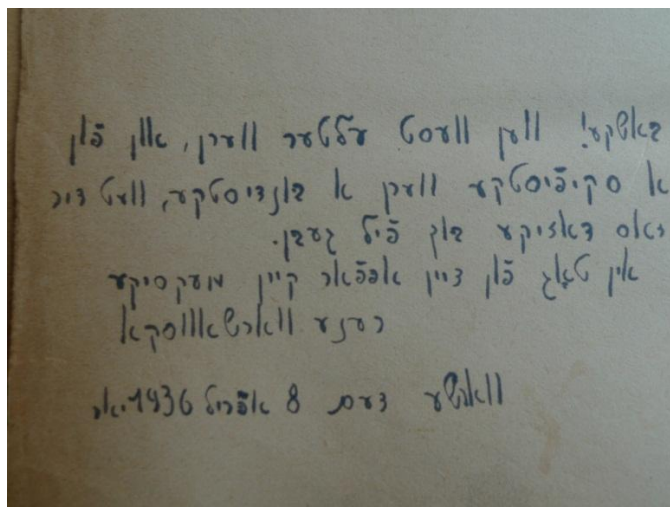 באשקע! ווען וועסט עלטער ווערן, און פֿון
א סקיפֿיסטקע ווערן א בונדיסטקע, וועט דיר
דאס דאזיקע בוך פֿיל געבן.
אין טאָג פֿון דיין אפּפֿאר קיין מעקסיקע
רענע ווארשאווסקא
ווארשע דעם 8 אפּריל 1936 יאר